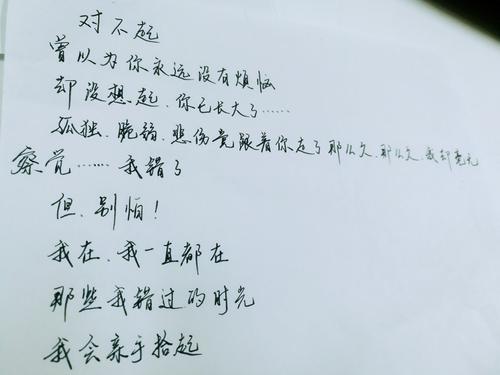 对不起
曾以为你永远没有烦恼
却没想起、你已长大了……
孤独、脆弱、悲伤竟跟着你走了那么久、那么久、我却毫无
察觉……我错了
但、别怕！
我在、我一直都在
那些我错过的时光
我会亲手拾起